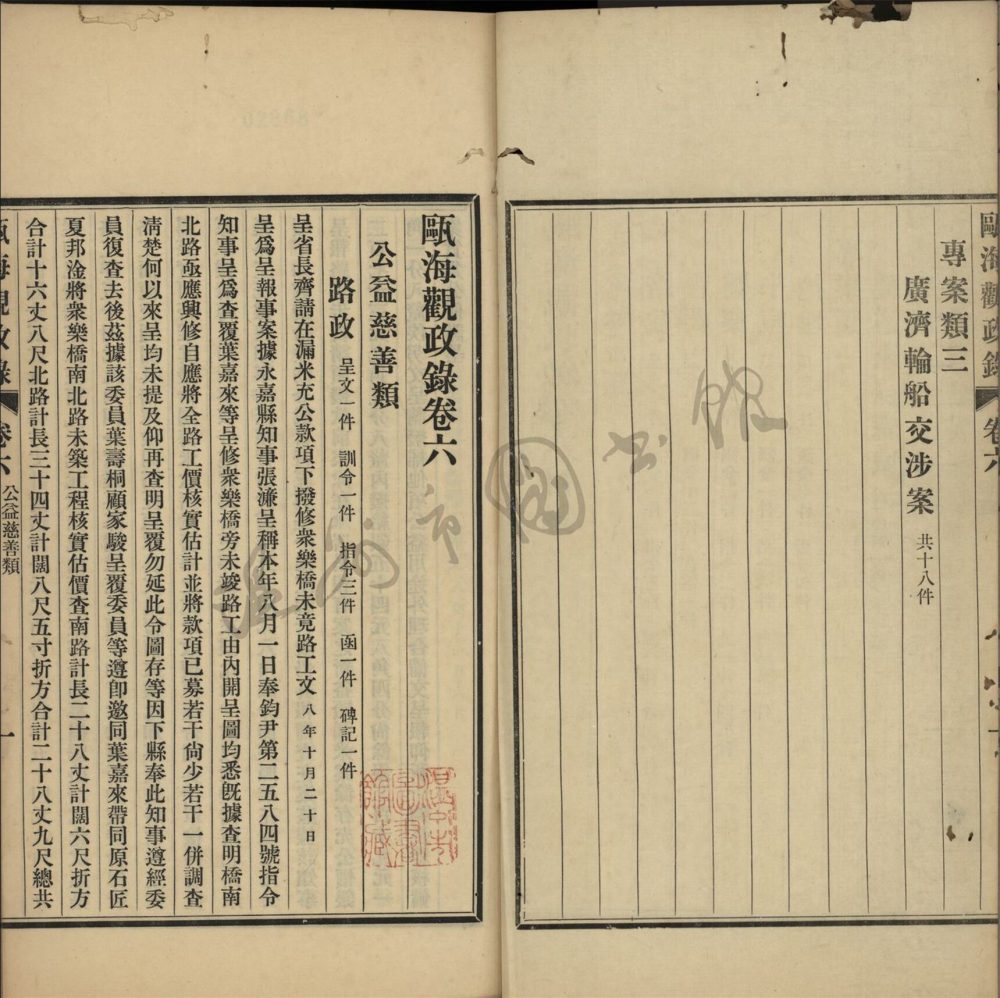 甌海觀政錄
卷六
專案類三
廣濟輪船交涉案 共十八件
甌海觀政錄卷六
公益慈善類
路政 呈文一件 訓令一件 指令三件 函一件 碑記一件
呈省長齊請在漏米充公款項下撥修衆樂橋未竟路工文 八年十月二十日
呈爲呈報事案據永嘉縣知事張濂呈稱本年八月一日奉鈞尹第二五八四號指令
知事呈爲查覆葉嘉來等呈修衆樂橋旁未竣路工由內開呈圖均悉旣據查明橋南
北路亟應興修自應將全路工價核實估計並將款項已募若干尙少若干一併調查
淸楚何以來呈均未提及仰再查明呈覆勿延此令圖存等因下縣奉此知事遵經委
員復查去後茲據該委員葉壽桐顧家駿呈覆委員等遵卽邀同葉嘉來帶同原石匠
夏邦淦將衆樂橋南北路未築工程核實估價查南路計長二十八丈計闊六尺折方
合計十六丈八尺北路計長三十四丈計闊八尺五寸折方合計二十八丈九尺總共
甌海觀政錄
卷六 公益慈善類
一
溫州市圖書館
溫州市圖書館藏
02268